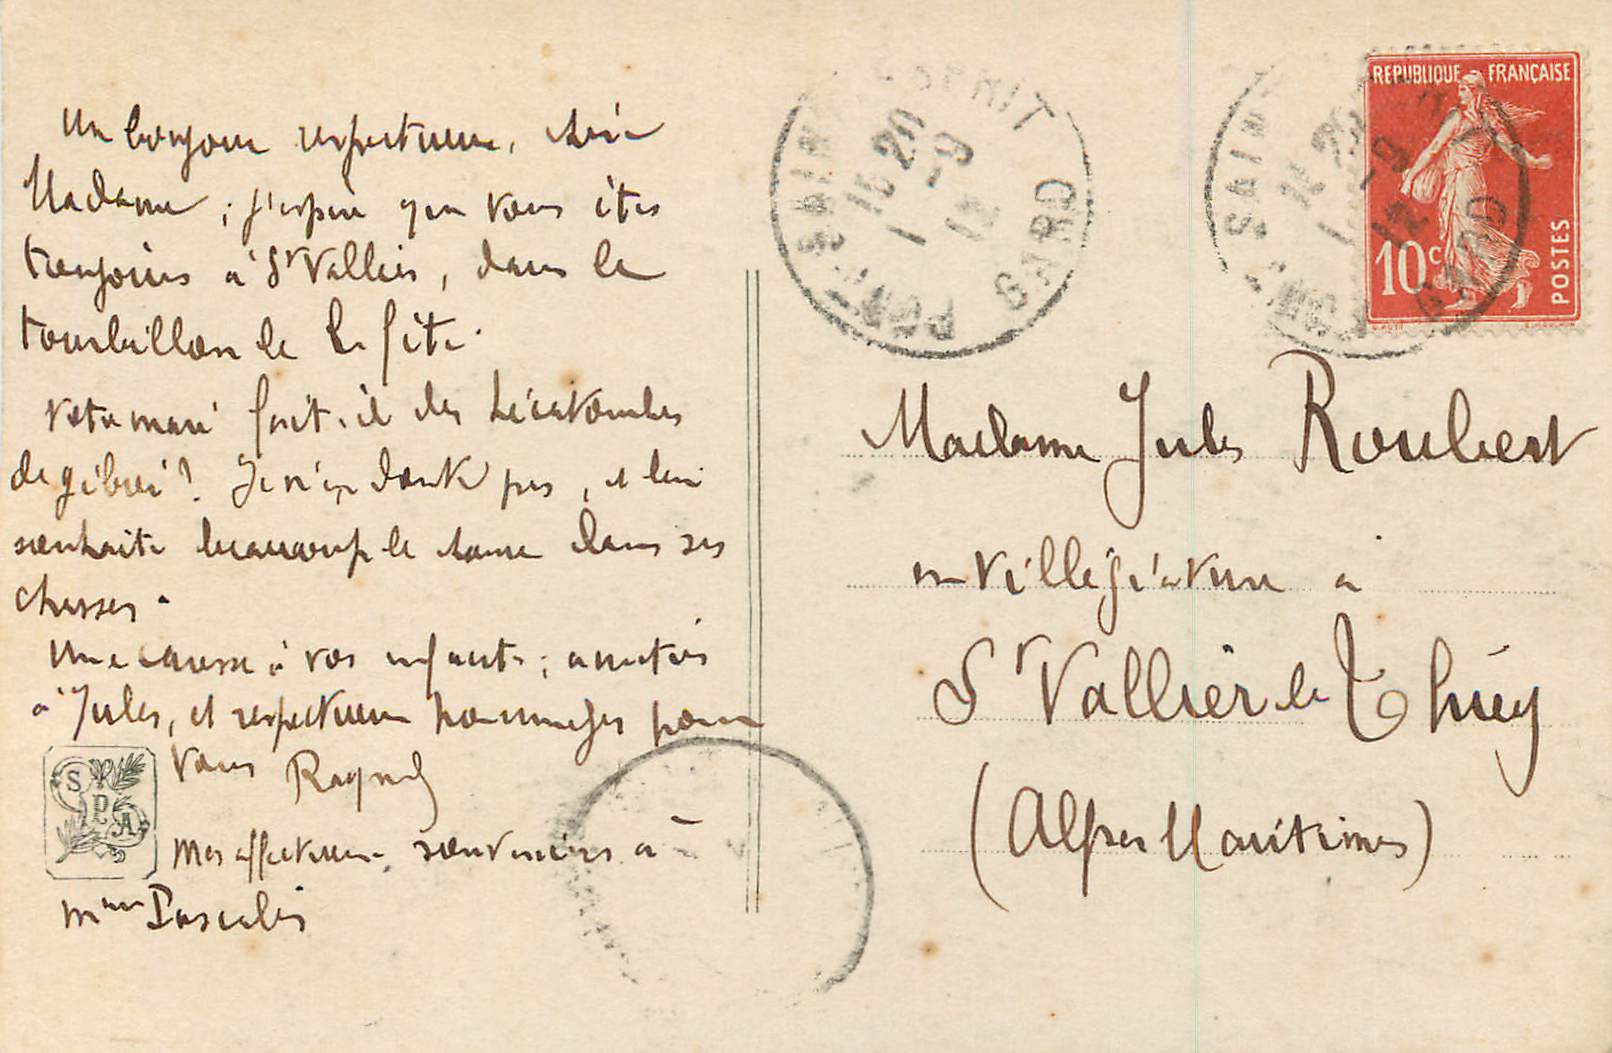 Un bonjour respectueux, chère
Madame ; j'espère que vous êtes
toujours à St Vallier, dans le
tourbillon de la fête.
Votre mari fait-il des hécatombes
de gibier ? Je n'en doute pas, et lui
souhaite beaucoup de chance dans ses
chasses.
Une caresse à vos enfants ; amitiés
à Jules, et respectueux hommages pour
vous
Mes affectueux souvenirs à
Mme Pascalis
SPA
PONT SAINT ESPRIT
15 20
1 - 9
12
GARD
REPUBLIQUE FRANÇAISE
10c
POSTES
SAINT
1 - 9
12
GARD
Madame Jules Roubert
en villégiature à
St Vallier de Thiey
(Alpes Maritimes)